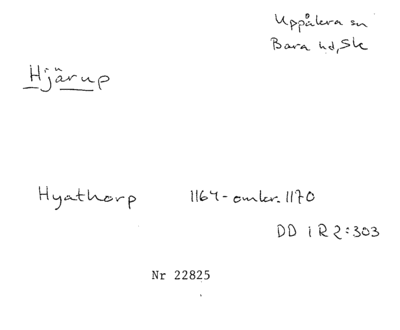 Uppåkra sn
Bara hd, Sk
Hjärup
Hyathorp 1164-omkr. 1170
DD 1 R 2:303
Nr 22825